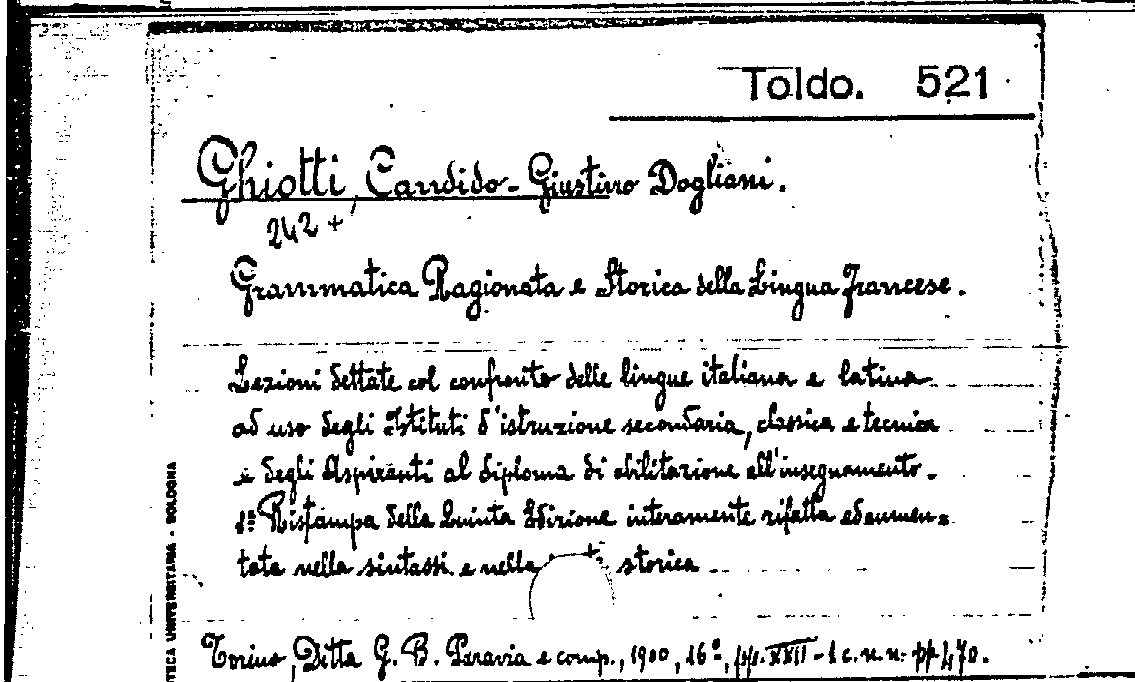 Toldo. 521
Ghiotti, Candido - Giustino Dogliani.
242 +
Grammatica Ragionata e Storica della Lingua Francese.
Lezioni dettate col confronto delle lingue italiana e latina
ad uso degli Istituti d'istruzione secondaria, classica e tecnica
e degli Aspiranti al diploma di abilitazione all'insegnamento.
1ª Ristampa della Quinta Edizione interamente rifatta ed aumen=
tata nella sintassi e nella storica
Torino, Ditta G. B. Paravia e comp., 1900, 16º, pp. XXII - 1 c. n. n. pp. 470.
TECA UNIVERSITARIA - BOLOGNA